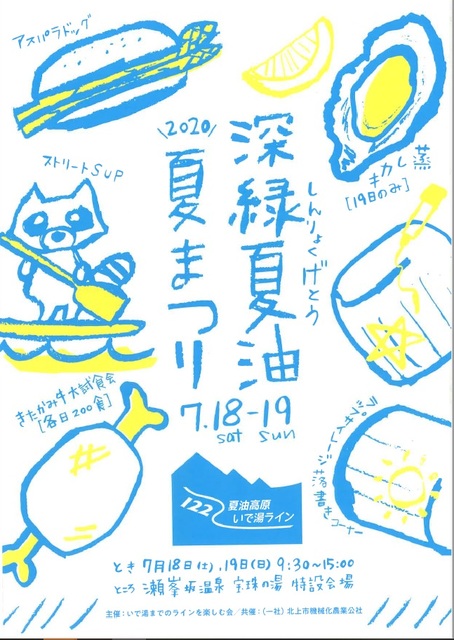 アスパラドッグ
\2020/
深緑夏油
しんりょくげとう
夏まつり
7.18-19
sat sun
蒸カキ
[19日のみ]
ストリートSUP
きたかみ牛大試食会
[各日200食]
ラップサイレージ落書きコーナー
122
夏油高原
いで湯ライン
とき 7月18日(土),19日(日) 9:30~15:00
ところ 瀬峯坂温泉 宝珠の湯 特設会場
主催:いで湯までのラインを楽しむ会/共催:(一社)北上市機械化農業公社